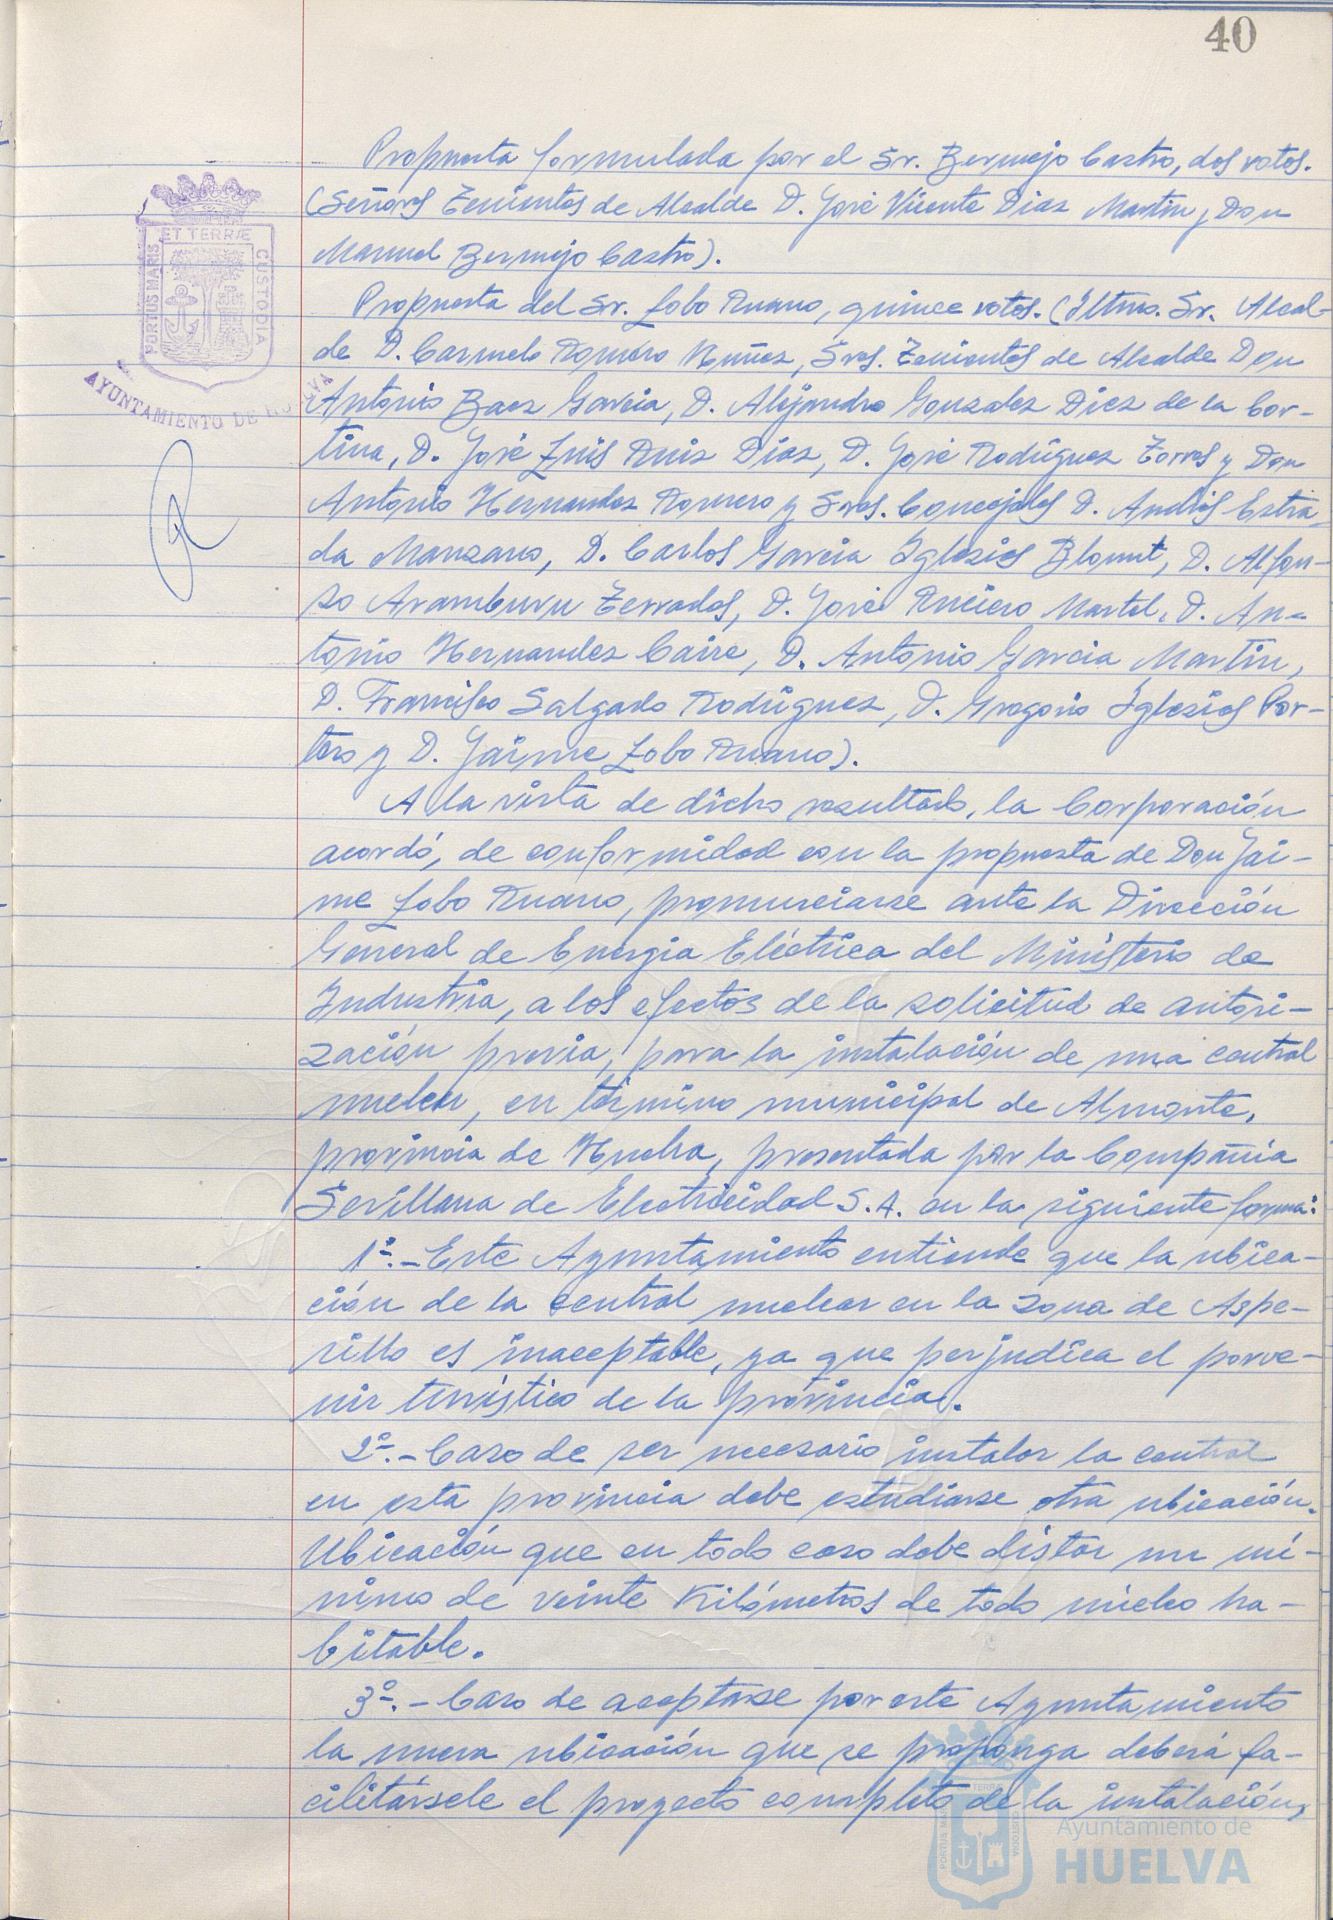 40
Propuesta formulada por el Sr. Bermejo Castro, dos votos.
(Señores Tenientes de Alcalde D. José Vicente Diaz Martin y Don
Manuel Bermejo Castro).
Propuesta del Sr. Lobo Ruano, quince votos. (Iltmo. Sr. Alcal-
de D. Carmelo Romero Nuñez, Sres. Tenientes de Alcalde Don
Antonio Baez Garcia, D. Alejandro Gonzalez Diez de la Cor-
tina, D. José Luis Ruiz Diaz, D. José Rodriguez Torres y Don
Antonio Hernandez Romero y Sres. Concejales D. Andrés Estra-
da Manzano, D. Carlos Garcia Iglesias Blount, D. Alfon-
so Aramburu Terrades, D. José Martel, D. An-
tonio Hernandez Cairé, D. Antonio Garcia Martin,
D. Francisco Salgado Rodriguez, D. Gregorio Iglesias Por-
tero y D. Jaime Lobo Ruano).
A la vista de dicho resultado, la Corporación
acordó, de conformidad con la propuesta de Don Jai-
me Lobo Ruano, pronunciarse ante la Dirección
General de Energia Eléctrica del Ministerio de
Industria, a los efectos de la solicitud de autori-
zación previa, para la instalación de una central
nuclear, en término municipal de Almonte,
provincia de Huelva, presentada por la Compañia
Sevillana de Electricidad S.A. en la siguiente forma:
1º.- Este Ayuntamiento entiende que la ubica-
ción de la central nuclear en la zona de Aspe-
rillo es inaceptable, ya que perjudica el porve-
nir turístico de la provincia.
2º.- Caso de ser necesario instalar la central
en esta provincia debe estudiarse otra ubicación.
Ubicación que en todo caso debe distar un mí-
nimo de veinte Kilómetros de todo núcleo ha-
bitable.
3º.- Caso de aceptarse por este Ayuntamiento
la nueva ubicación que se proponga deberá fa-
cilitársele el proyecto completo de la instalación,
PORTUS MARIS
ET TERRÆ
CUSTODIA
AYUNTAMIENTO DE HUELVA
PORTUS MARIS
ET TERRÆ
CUSTODIA
Ayuntamiento de
HUELVA